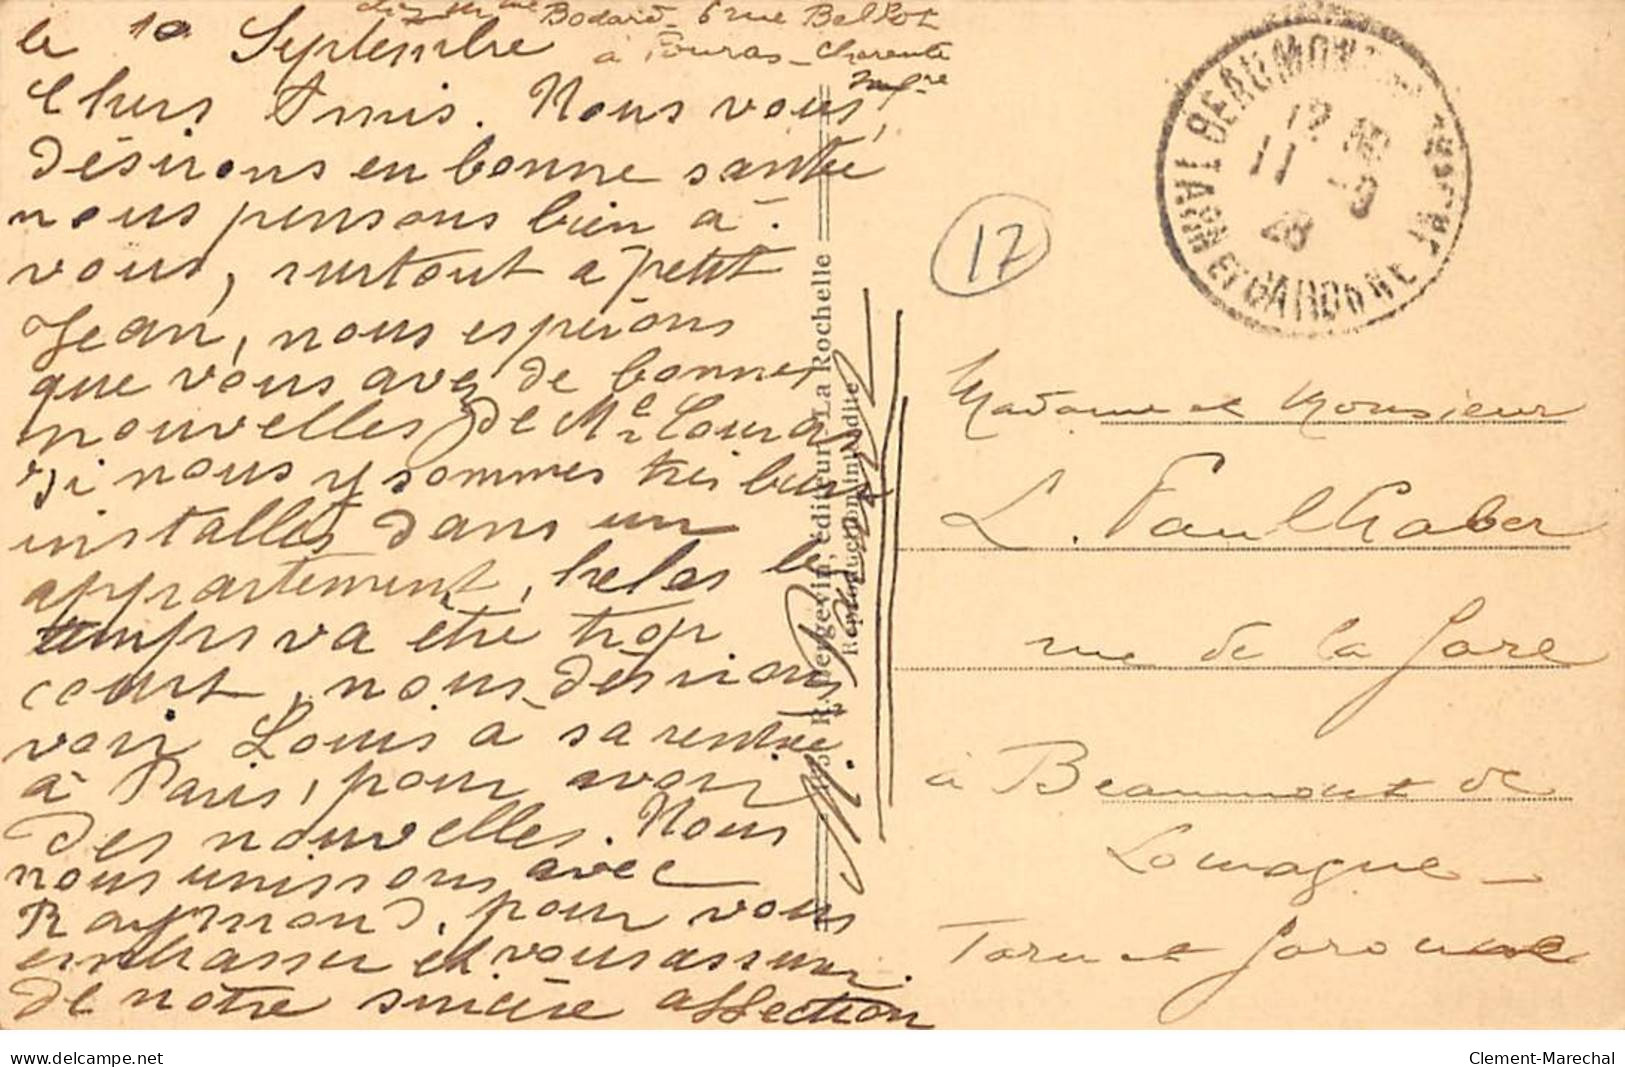 chez Mme Bodard - 6 rue Bellot
à Fouras - Charente
Infre
le 10 Septembre
Chers Amis. Nous vous
désirons en bonne santé
nous pensons bien à
vous, surtout à petit
Jean, nous espérons
que vous avez de bonnes
nouvelles de Mr Louis
Ici nous y sommes très bien
installés dans un
appartement, helas le
temps va être trop
court, nous désirions
voir Louis à sa rentrée
à Paris, pour avoir
des nouvelles. Nous
nous unissons avec
Raymond, pour vous
embrasser et vous assurer
de notre sincère affection
R. Bergevin, éditeur, La Rochelle
Reproduction interdite
BEAUMONT
TARN ET GARONNE
12
11 -9
28
17
Madame et Monsieur
L. Faulhaber
rue de la Gare
à Beaumont de
Lomagne -
Tarn et Garonne
delcampe.net
Clement-Marechal